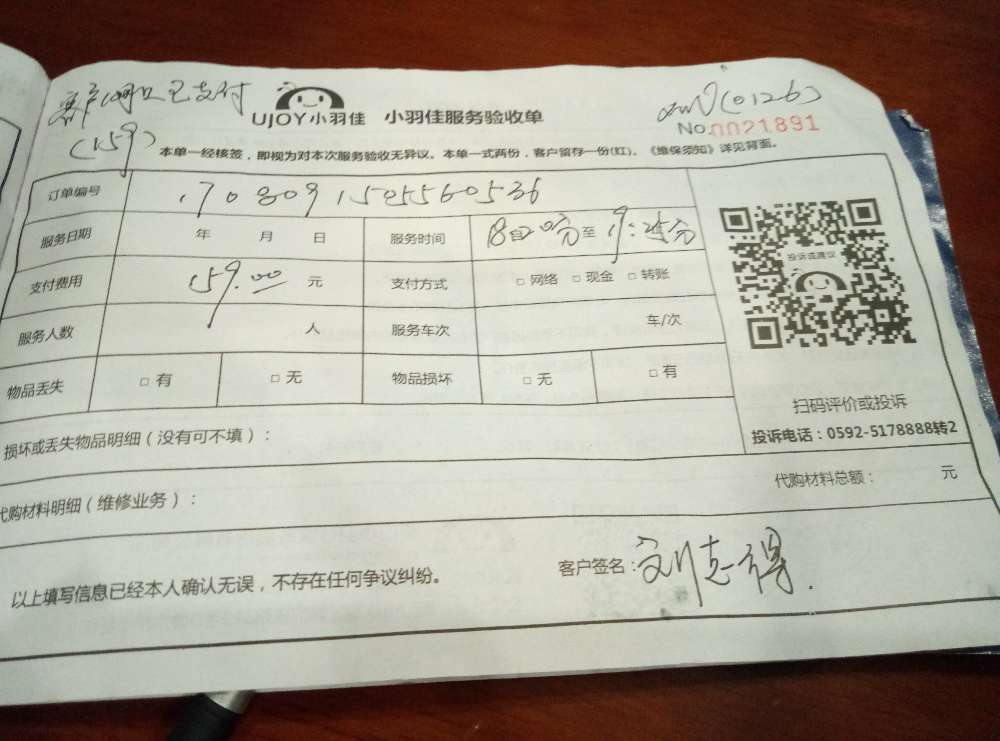 客户 已支付
(159)
UJOY小羽佳 小羽佳服务验收单
(0126)
No.0021891
本单一经核签，即视为对本次服务验收无异议。本单一式两份，客户留存一份(红)。《维保须知》详见背面。
订单编号 1708091505560536
服务日期 年 月 日 服务时间 至 19:25分
支付费用 159.00 元 支付方式 □ 网络 □ 现金 □ 转账
服务人数 人 服务车次 车/次
物品丢失 □ 有 □ 无 物品损坏 □ 无 □ 有
投诉或建议
扫码评价或投诉
投诉电话：0592-5178888转2
损坏或丢失物品明细（没有可不填）：
代购材料明细（维修业务）： 代购材料总额： 元
以上填写信息已经本人确认无误，不存在任何争议纠纷。 客户签名：刘志得